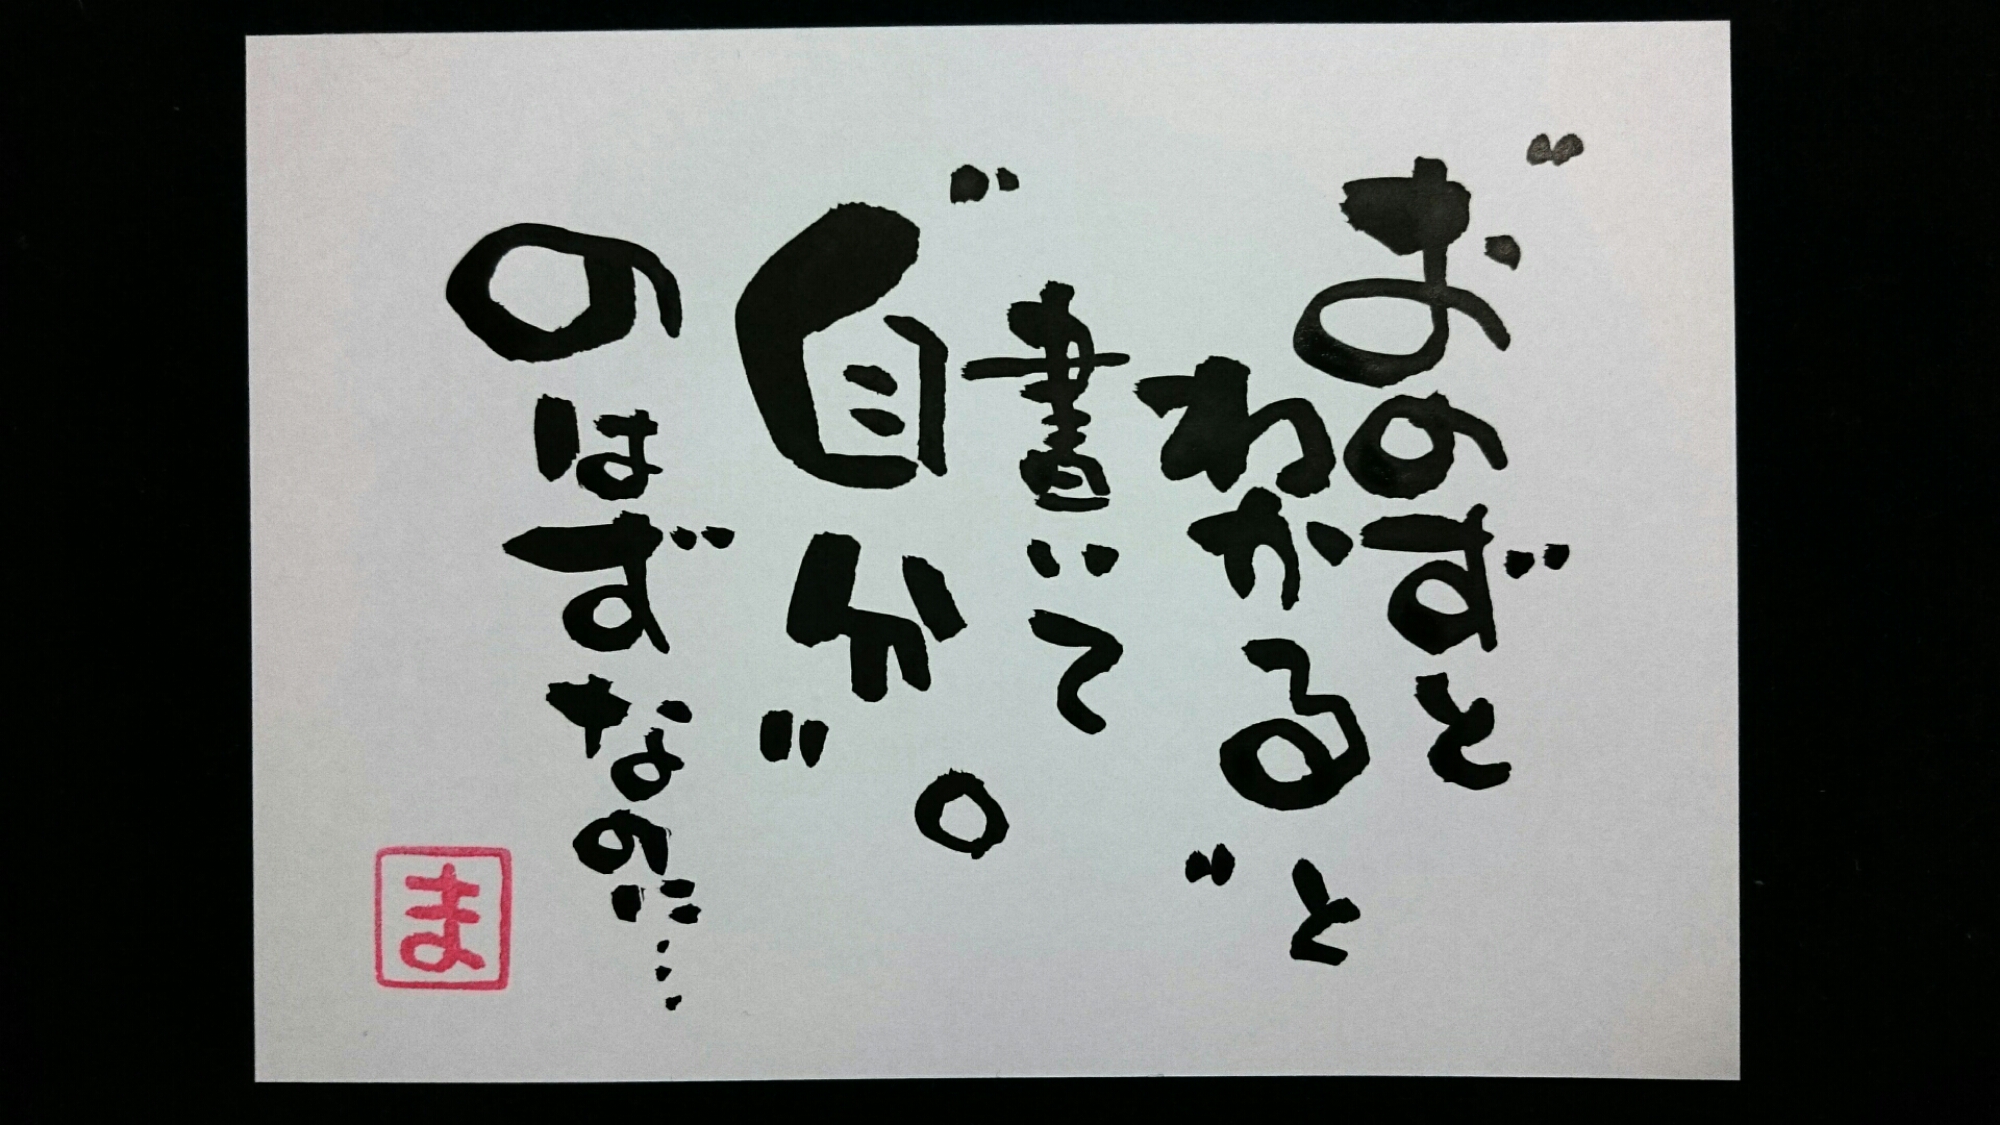 〝おのずと
わかる〟と
書いて
〝自分〟。
のはずなのに…
ま